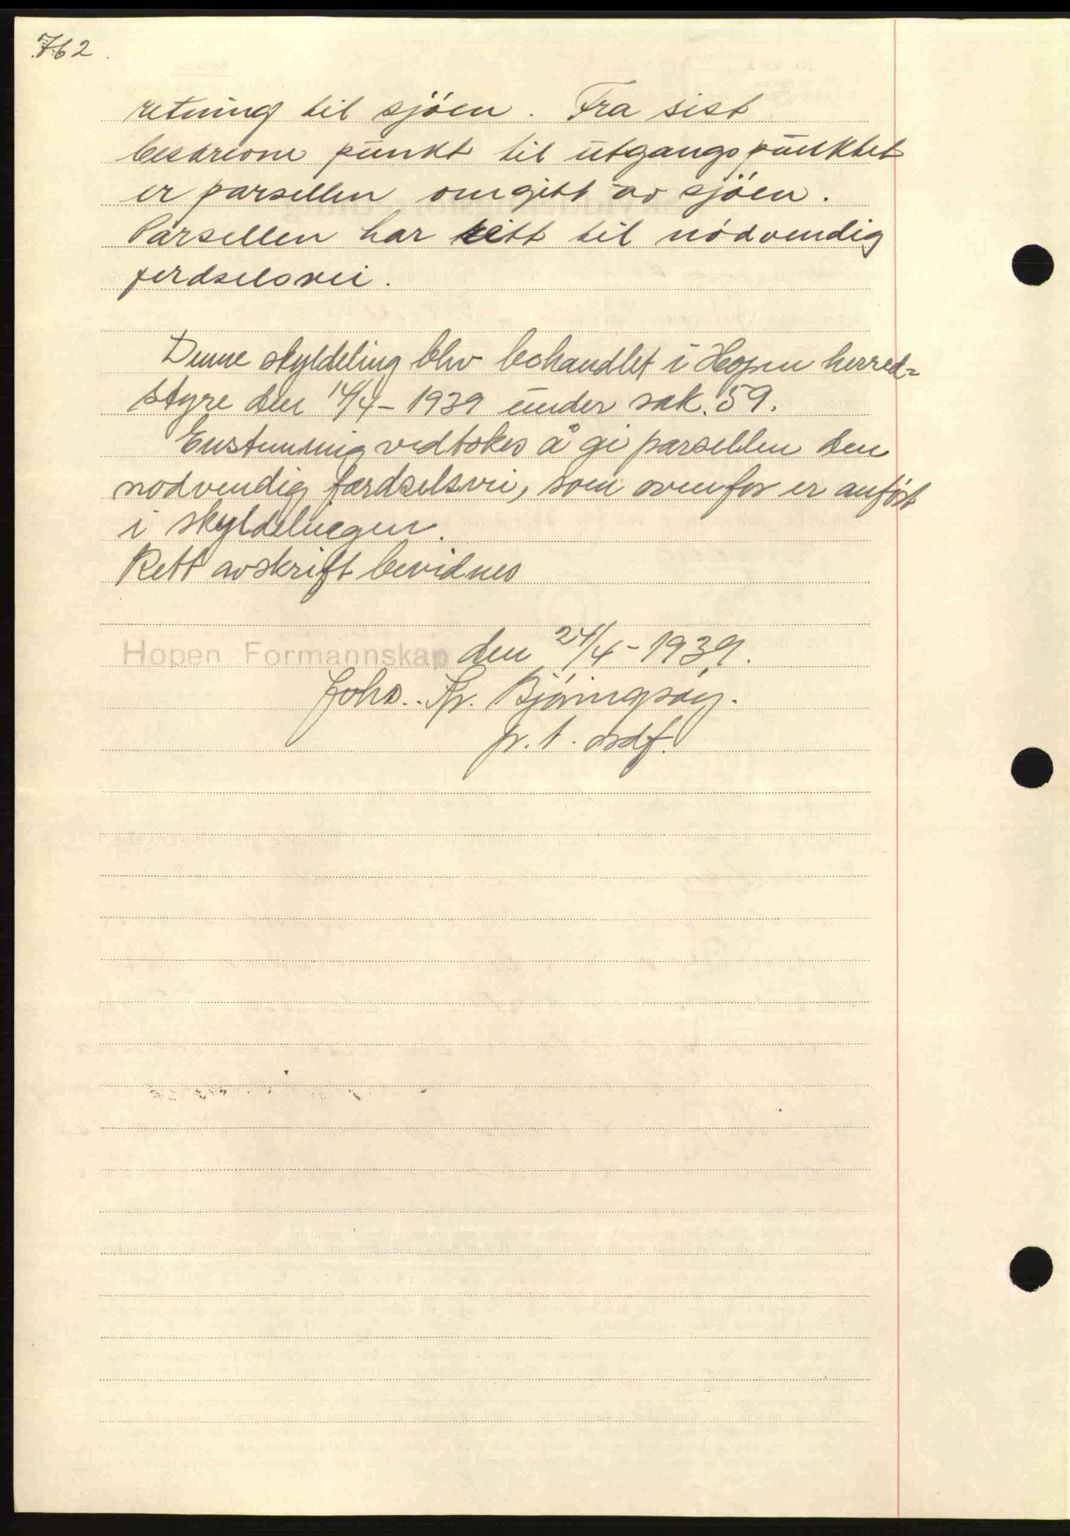 762.
retning til sjöen. Fra sist
beskrevne punkt til utgangspunktet
er parsellen omgitt av sjöen.
Parsellen har rett til nödvendig
ferdselsvei.
Denne skyldeling blev behandlet i Hopen herred=
styre den 14/4-1939 under sak. 59.
Enstemmig vedtokes å gi parsellen den
nodvendig færdselsvei, som ovenfor er anført
i skyldelingen.
Rett avskrift bevidnes
Hopen Formannskap den 24/4-1939.
Johs. Kr. Bjøringsøy.
p.t. ordf.